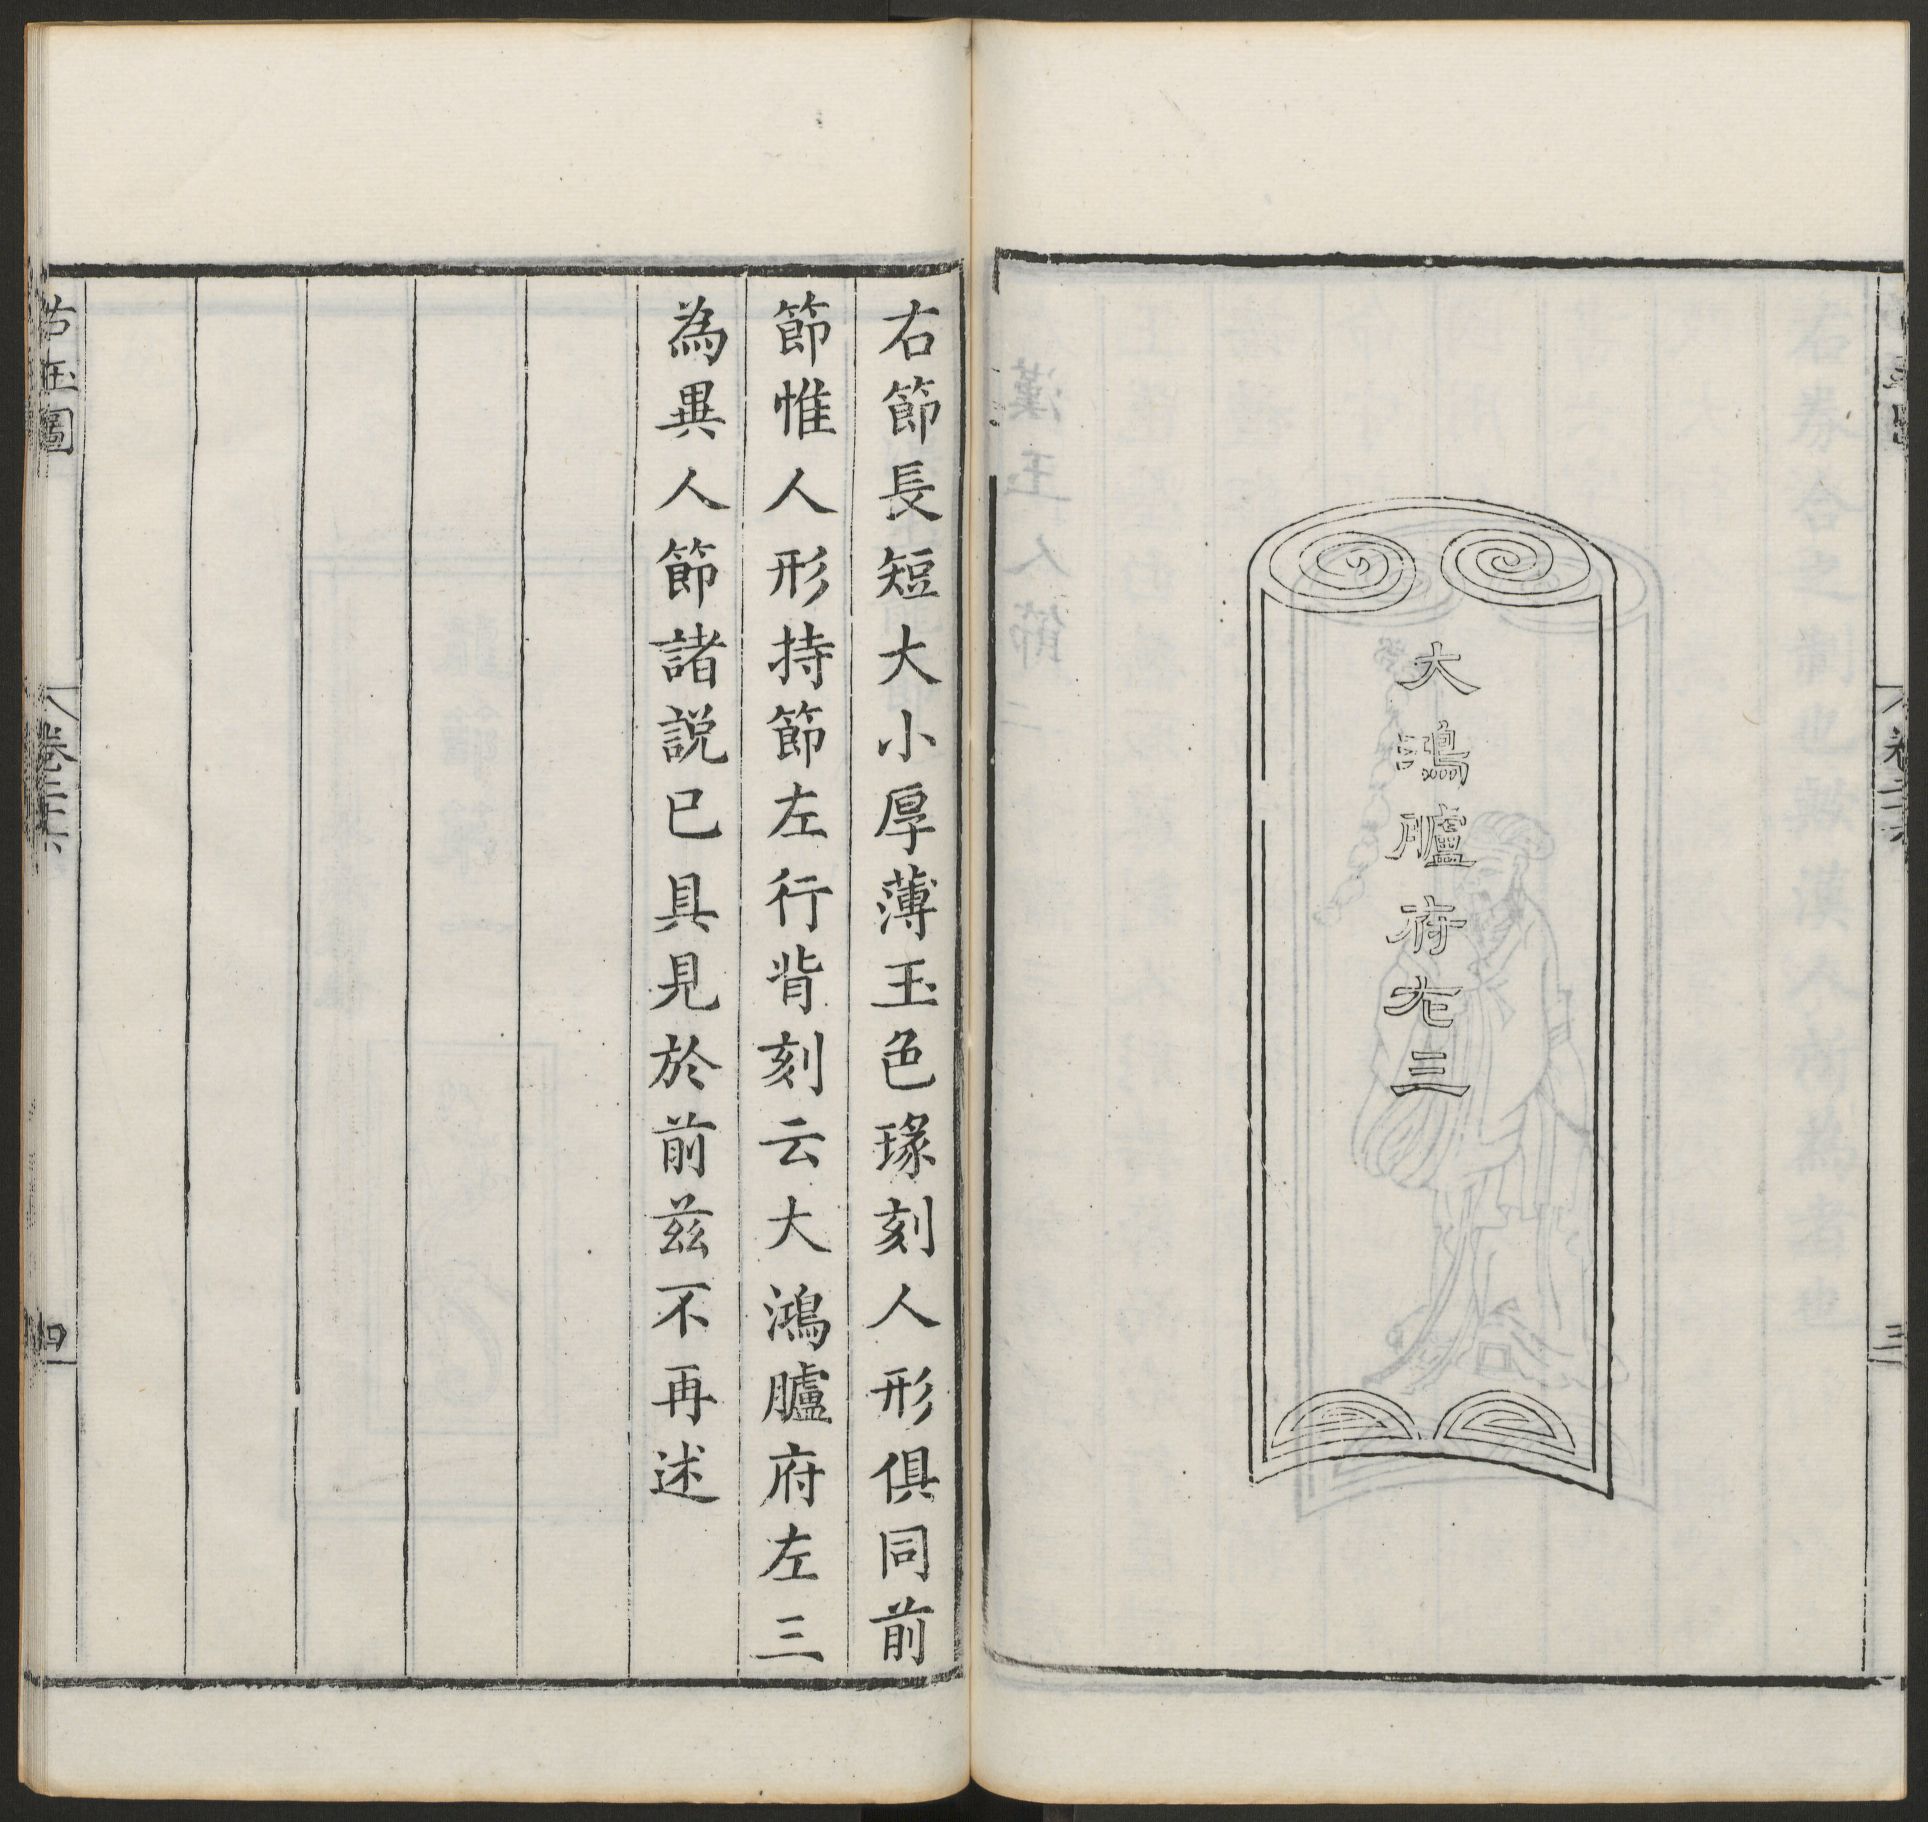 大鴻臚府左三
三
右節長短大小厚薄玉色瑑刻人形俱同前
節惟人形持節左行背刻云大鴻臚府左三
為異人節諸説已具見於前茲不再述
古玉圖
四